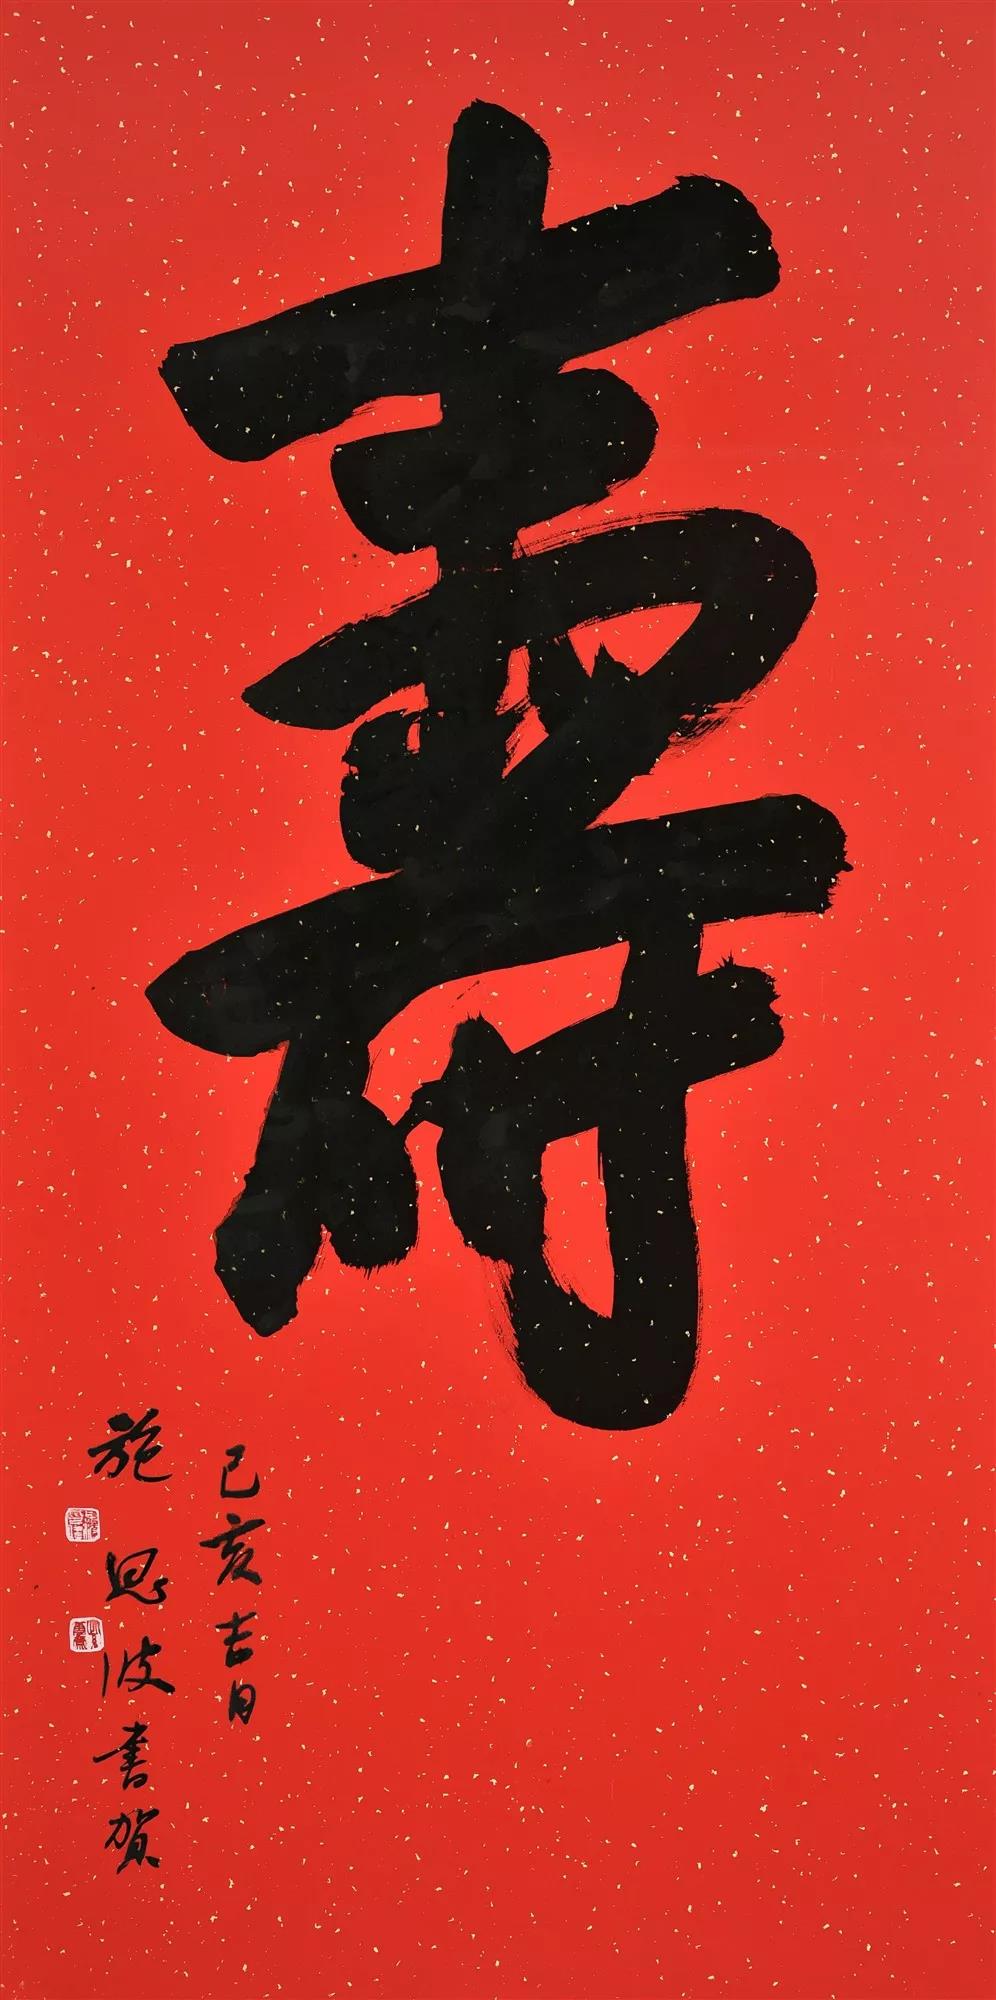 壽
己亥吉日
施恩波書賀